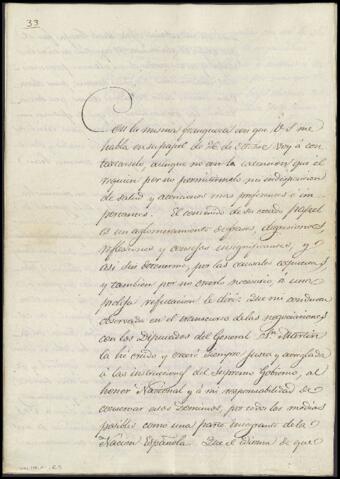 33
Con la misma franqueza con que V.S. me
habla en su papel de 26 de Octubre voy á con
textarselo, aunque no con la extension que el
requiere por no permitirmelo mi indisposicion
de salud y atenciones mas preferentes é im
portantes. El contenido de su citado papel
es un aglomeramiento de frases, digresiones
reflexiones y consejos insignificantes, y
asi sin detenerme, por las causales
y tambien por no creerlo necesario, á una
prolija refutacion le diré: Que mi conducta
observada en el transcurso de las negociaciones
con los Diputados del General Sn. Martin
la hé creido y creeré siempre justa y arreglada
á las instrucciones del Supremo Gobierno, al
honor Nacional y á mi responsabilidad de
conservar estos Dominios, por todos los medios
posibles como una parte integrante de la
Nacion Española. Que el idioma de que